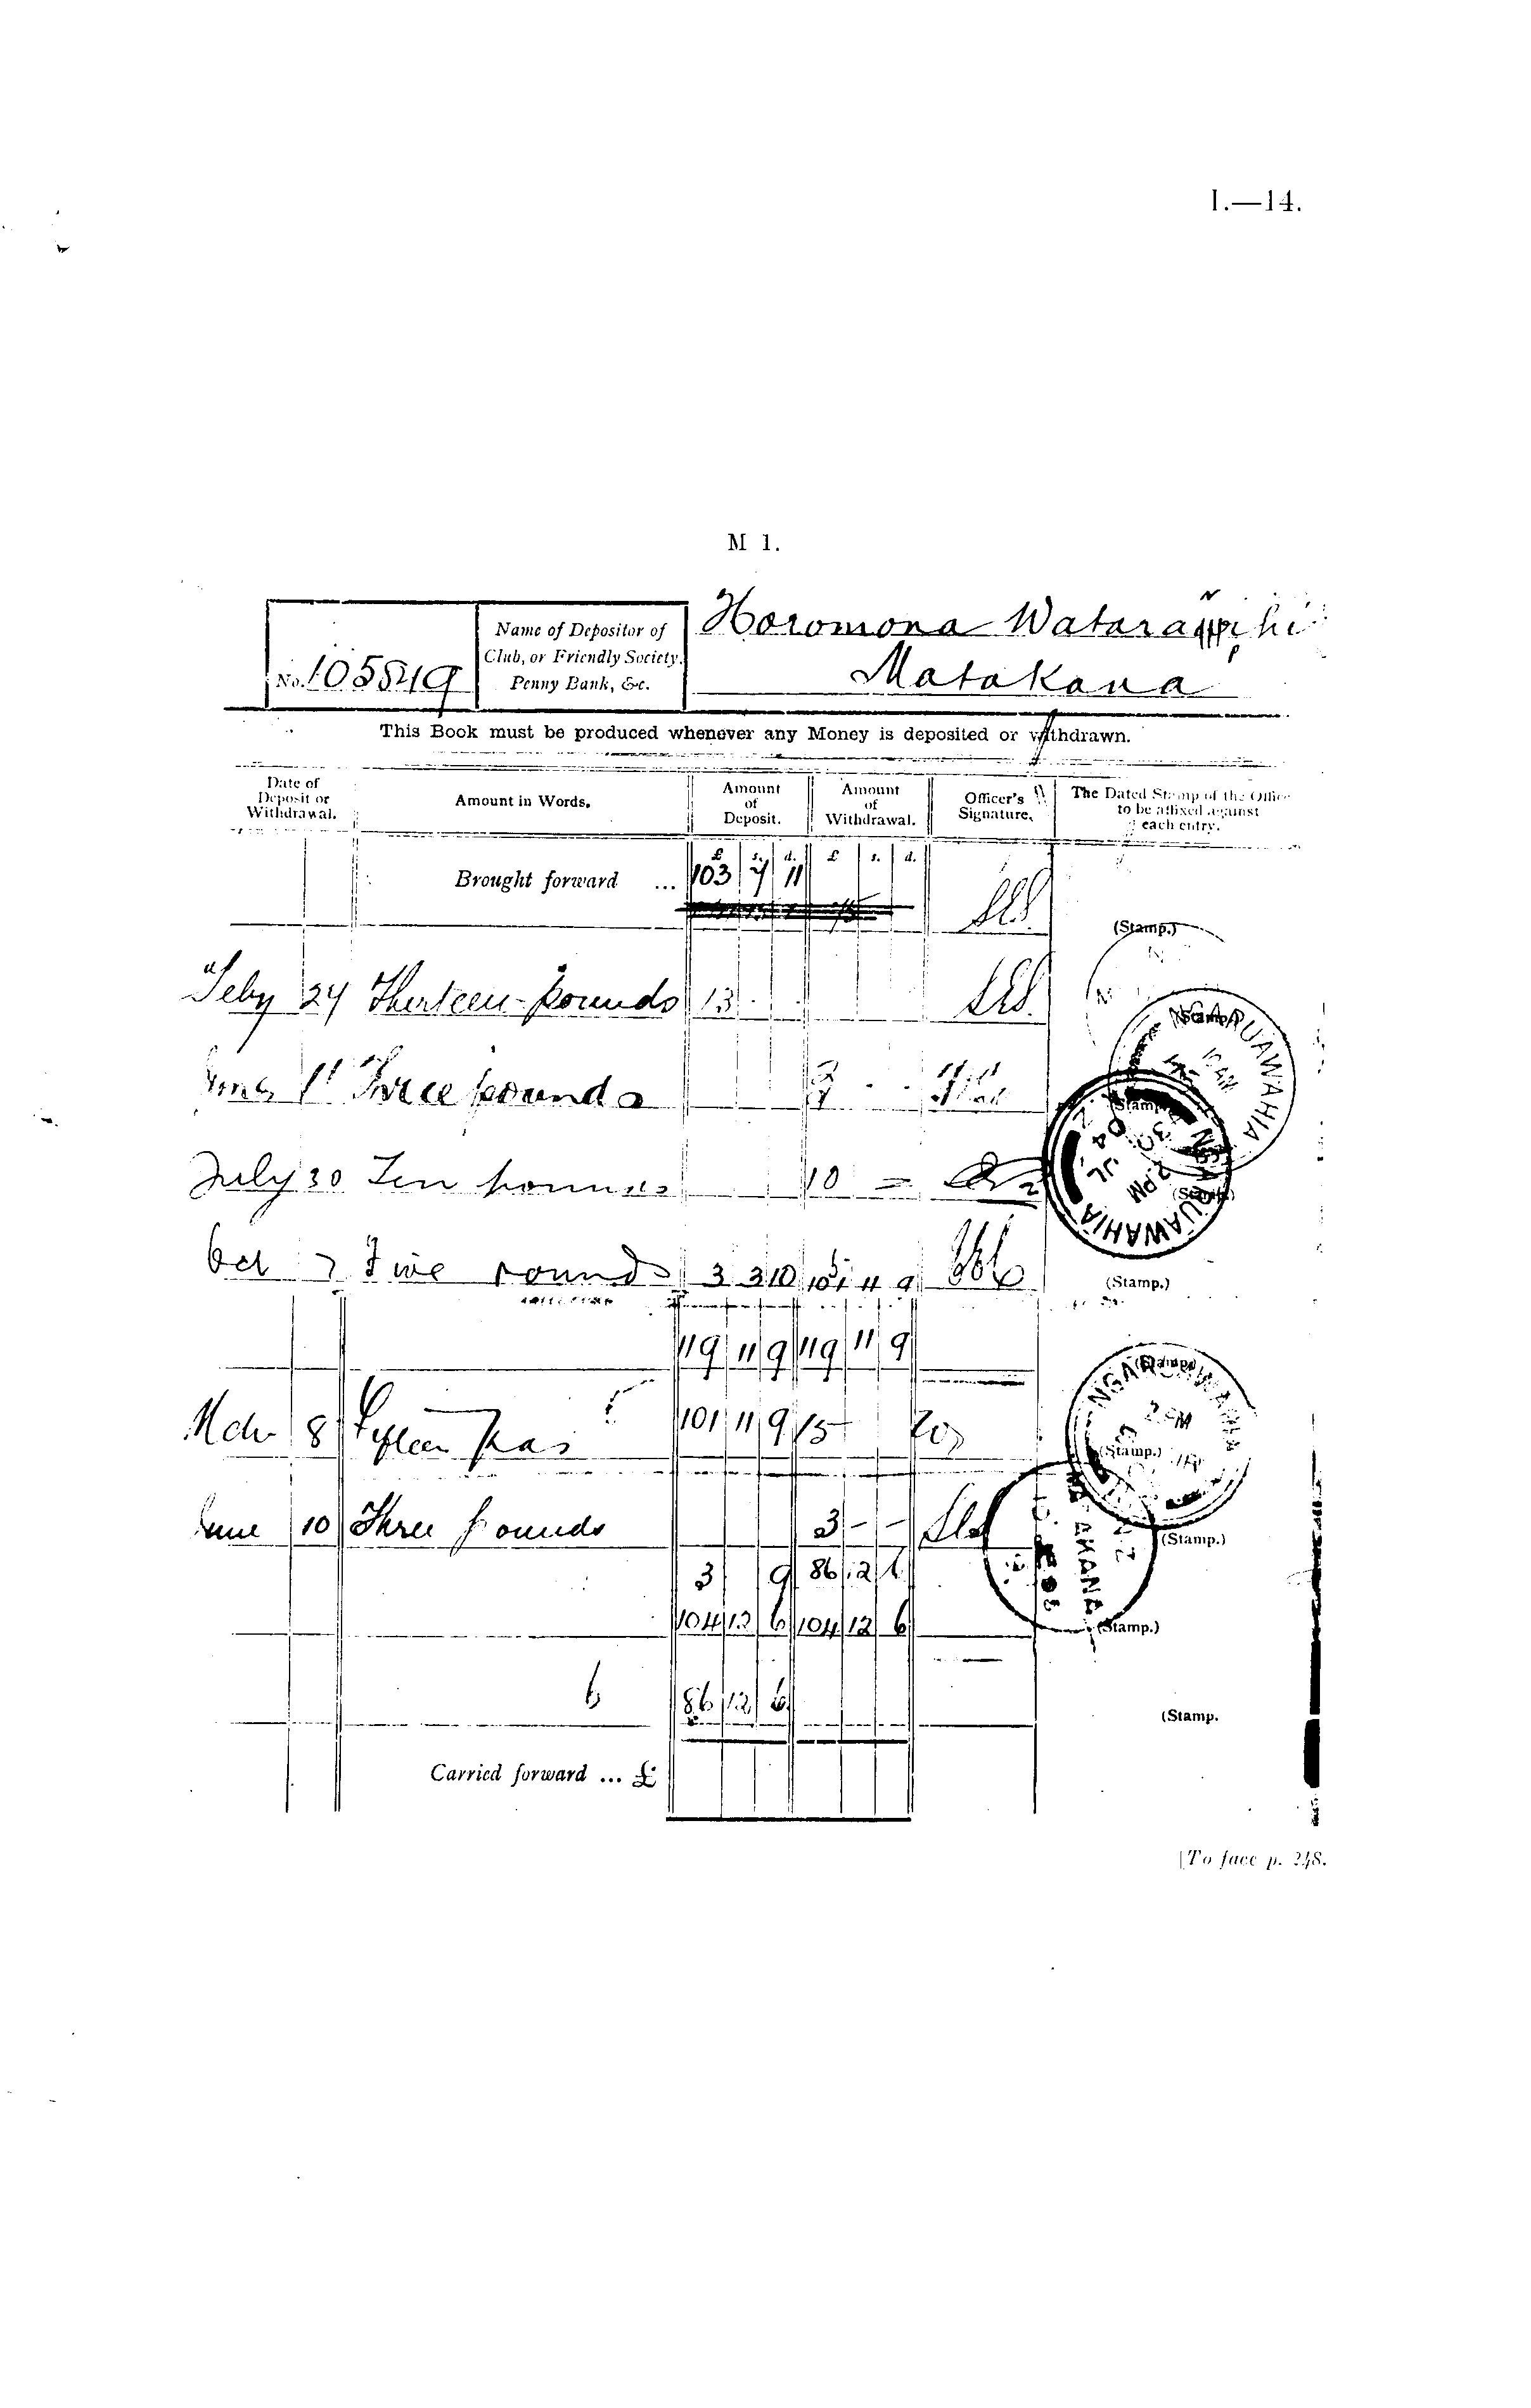 I.—14.
M 1.
Name of Depositor of
Club, or Friendly Society,
Penny Bank, &c.
No. 105849
Horomona
Matakana
This Book must be produced whenever any Money is deposited or withdrawn.
Date of Deposit or Withdrawal. Amount in Words. Amount of Deposit. Amount of Withdrawal. Officer's Signature. The Dated Stamp of the Office to be affixed against each entry.
£ s. d. £ s. d.
Brought forward ... 103 7 11
(Stamp.)
Feby 24 Thirteen pounds 13
(Stamp.)
Three pounds 3
(Stamp.)
NGARUAWAHIA
10 AM
July 30 Ten pounds 10 =
(Stamp.)
NGARUAWAHIA
2 PM
30 JL 04
N.Z
Oct 7 Five pounds 3 3 10 101 11 9
(Stamp.)
119 11 9 119 11 9
(Stamp.)
Mch 8 Fifteen 101 11 9 15
(Stamp.)
NGARUAWAHIA
2 PM
June 10 Three pounds 3 - -
(Stamp.)
MATAKANA
N.Z
3 9 86 12 6
104 12 6 104 12 6
(Stamp.)
6 86 12 6
(Stamp.
Carried forward ... £
[To face p. 248.